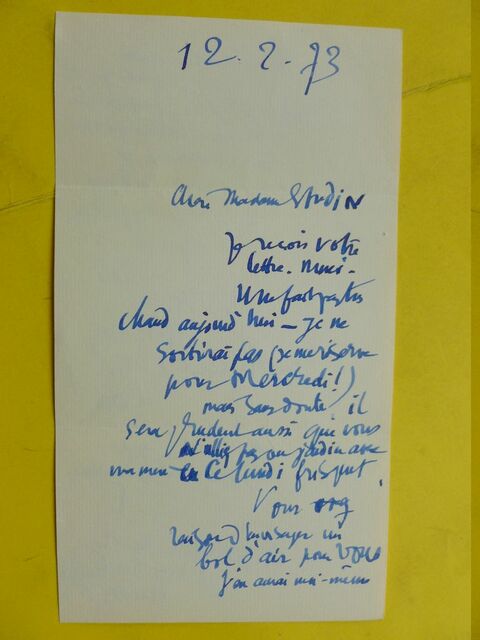 12.2.73
Chère Madame Studin
Je reçois votre
lettre. Merci.
Il ne fait pas très
chaud aujourd'hui — je ne
sortirai pas (je me réserve
pour Mercredi!)
mais sans doute il
sera prudent aussi que vous
n'alliez pas au jardin avec
maman en ce lundi frisquet.
Vous avez
raison d'envisager un
bol d'air pour vous
J'en aurai moi-même